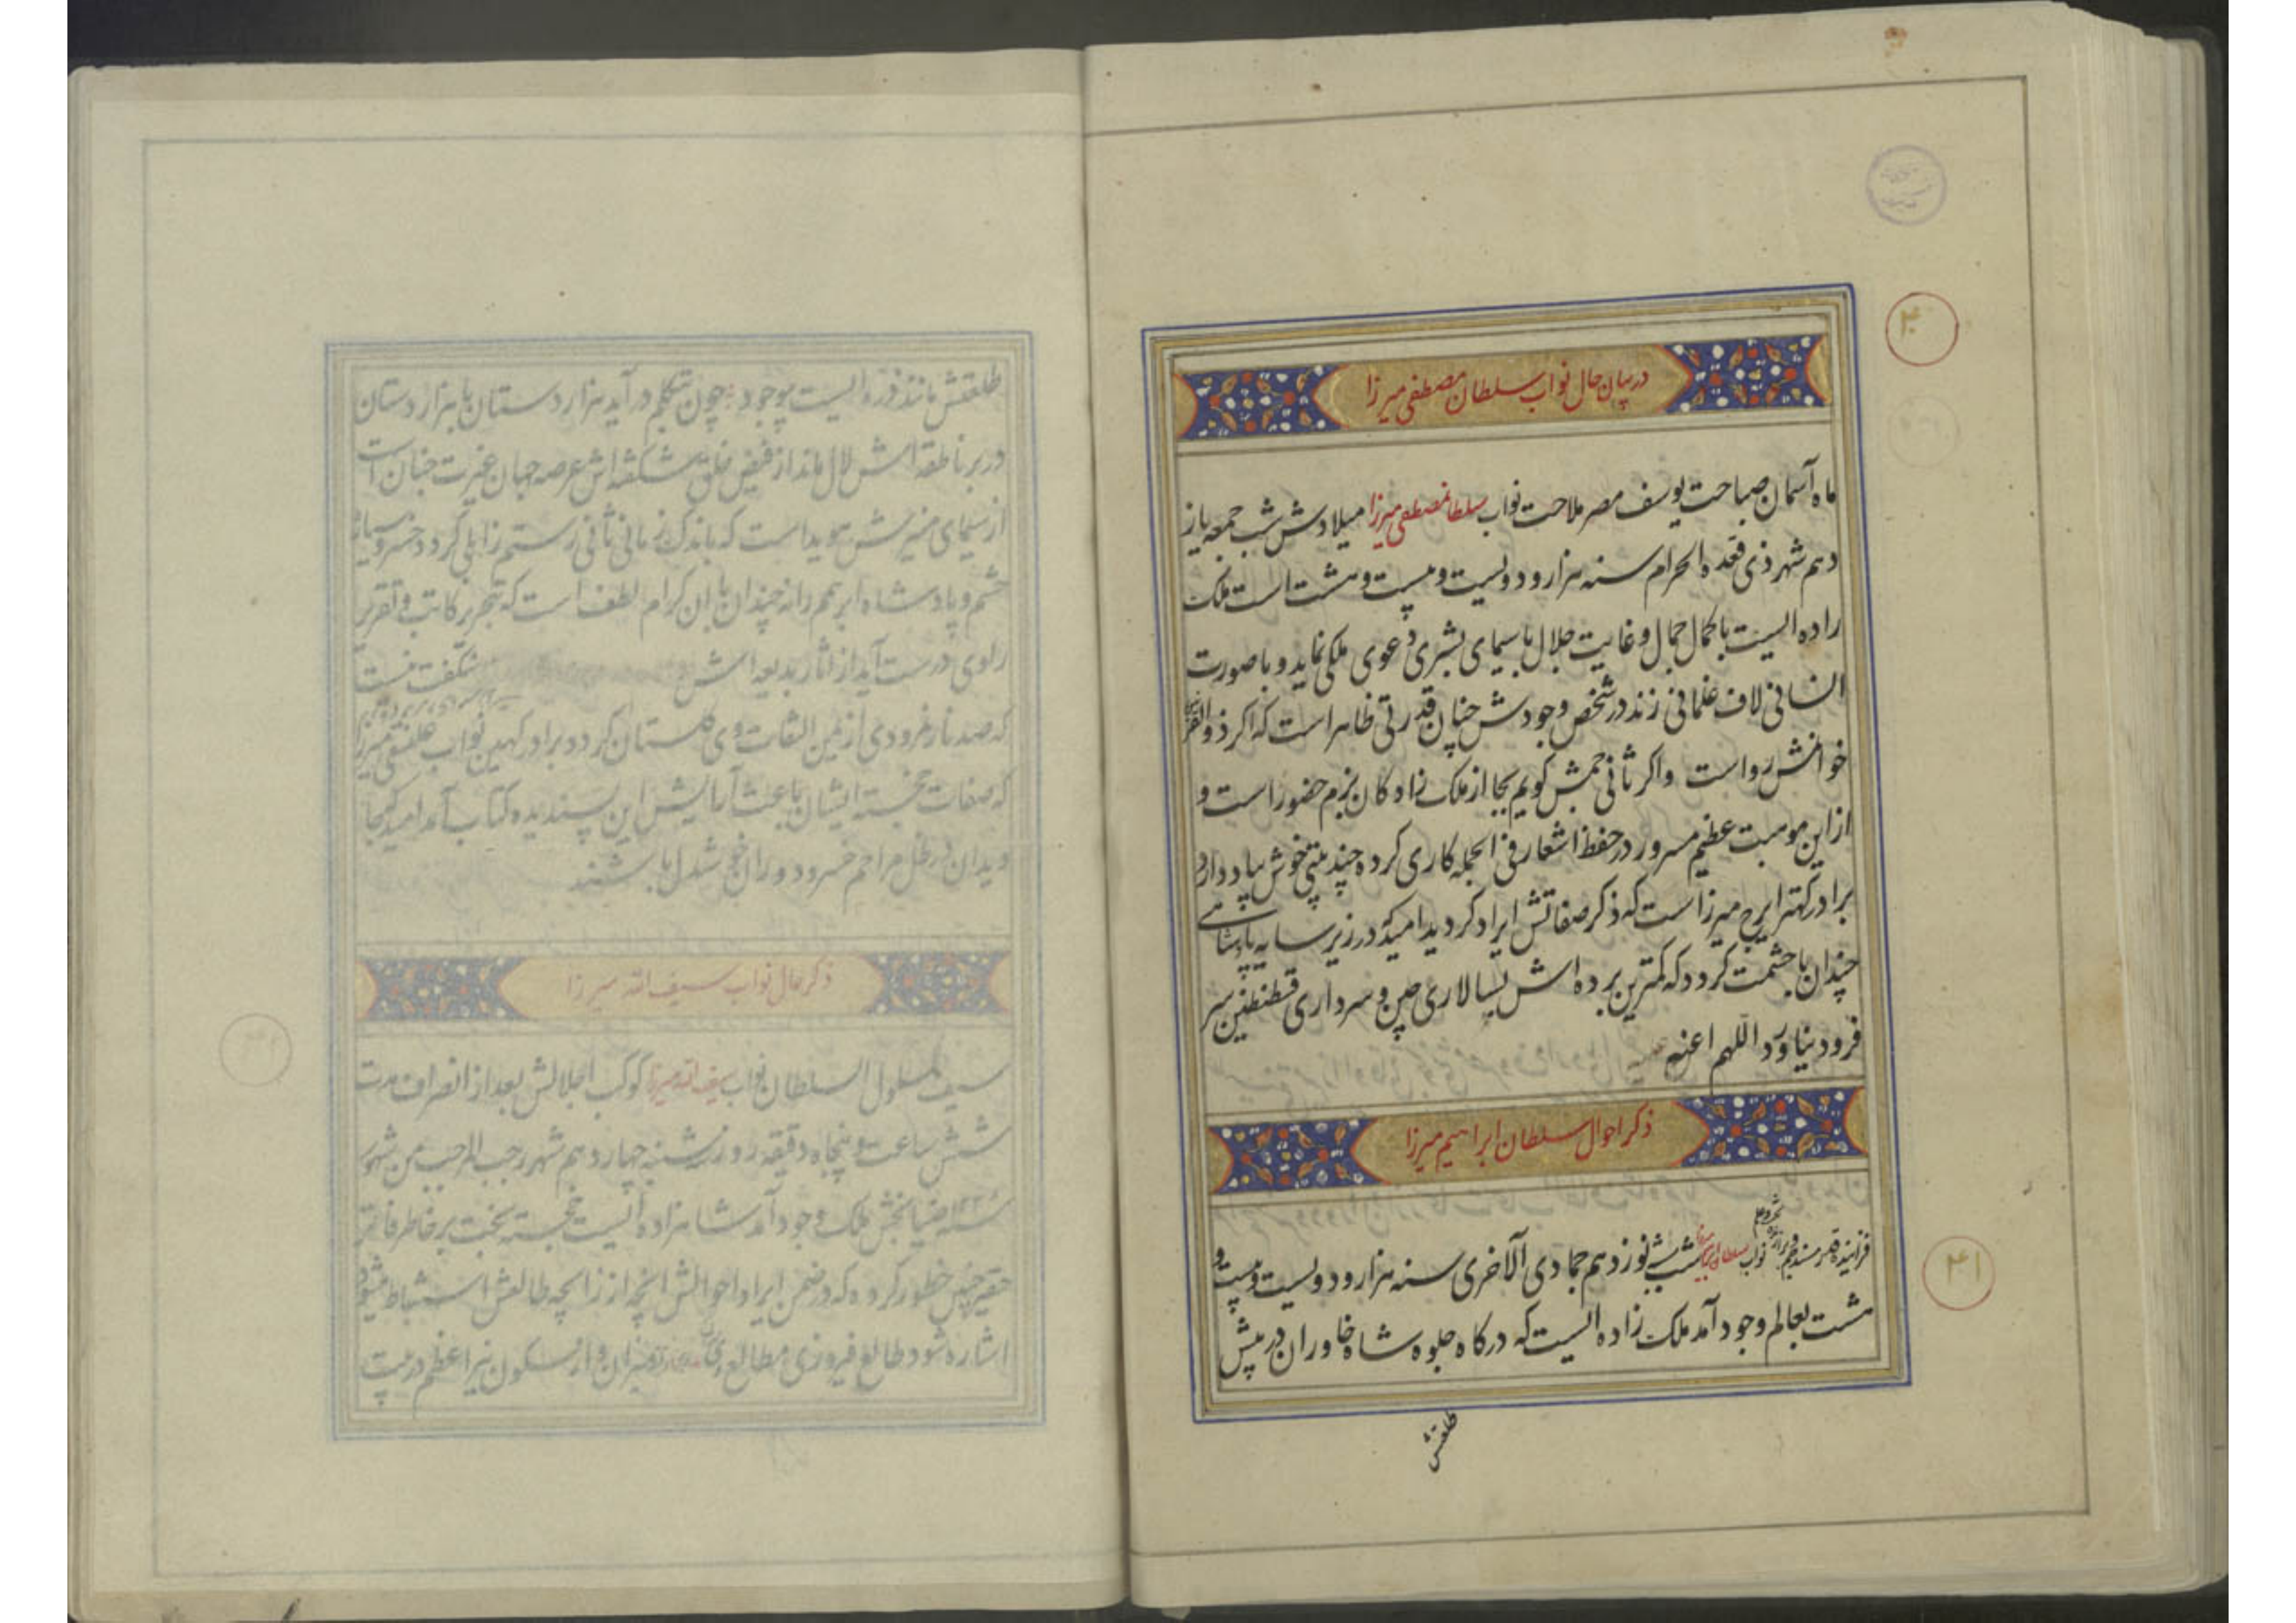 ۴۰
در بیان حال نواب سلطان مصطفی میرزا
ماه آسمان صباحت یوسف مصر ملاحت نواب سلطان مصطفی میرزا میلادش شب جمعه یاز
دهم شهر ذی قعده الحرام سنه هزار و دویست و بیست و هشت است ملک
زاده ایست با کمال جمال و غایت جلال با سیمای بشری دعوی ملکی نماید و با صورت
انسانی لاف غلمانی زند در شخص وجودش چنان قدرتی ظاهر است که اگر ذوالقرنین
خوانمش رواست و اگر ثانی جمش گویم بجا از ملک زادگان بزم حضور است و
از این موهبت عظیم مسرور در حفظ اشعار فی الجمله کاری کرده چند بیتی خوش بیاد دارد
برادر کهتر ایرج میرزا است که ذکر صفاتش ایراد گردید امید که در زیر سایه پادشاهی
چندان با حشمت گردد که کمترین برده اش بسپالاری چین و سرداری قسطنطنین سر
فرود نیاورد اللهم اعنه
ذکر احوال سلطان ابراهیم میرزا
۴۱
نواب سلطان ابراهیم میرزا شب نوزدهم جمادی الآخری سنه هزار و دویست و بیست و
هشت بعالم وجود آمد ملک زاده ایست که در گاه جلوه شاه خاوران در پیش
طلعتش
طلعتش مانند ذره ایست بیوجود چون بتکلم در آید هزار دستان با هزار دستان
در بر ناطقه اش لال ماند از فیض خلق شکفته اش عرصه جهان غیرت جنان است
از سیمای منیرش هویداست که باندک زمانی ثانی رستم زابلی گردد خسرو سیاره
حشم و پادشاه ابر همم را نه چندان با آن کرام لطف است که بتحریر کاتب و تقریر
راوی درست آید از آثار بدیعه اش شگفت نیست
که صد نار نمرودی از یمن التفات وی گلستان گردد برادر کهین نواب علینقی میرزا
که صفات خجسته ایشان باعث آرایش این پسندیده کتاب آمد امید که بجا
ویدان در ظل مراحم خسرو دوران خوشدل باشند
ذکر حال نواب سیف الله میرزا
سیف مسلول السلطان نواب سیف الله میرزا کوکب اجلالش بعد از انصراف مدت
شش ساعت و پنجاه دقیقه روز شنبه چهاردهم شهر رجب المرجب من شهور
سنه ضیابخش ملک وجود آمد شاهزاده ایست خجسته بخت بر خاطر فاتر
حقیر چنین خطور کرده که در ضمن ایراد احوالش آنچه از زایچه طالعش استنباط میشود
اشاره شود طالع فیروزی مطالع میزان و از سکون نیر اعظم در بیت